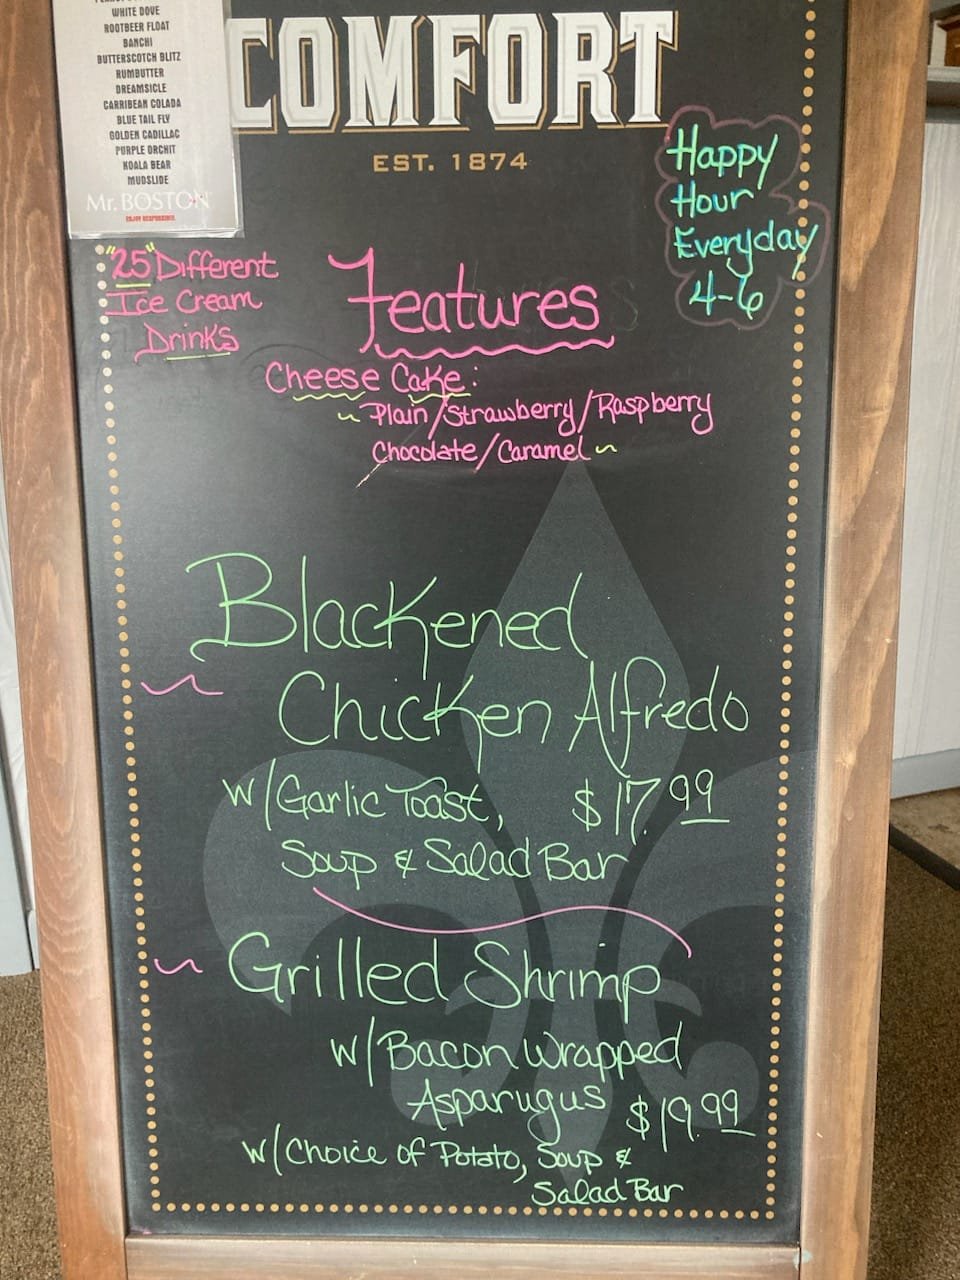 WHITE DOVE
ROOTBEER FLOAT
BANCHI
BUTTERSCOTCH BLITZ
RUMBUTTER
DREAMSICLE
CARRIBEAN COLADA
BLUE TAIL FLY
GOLDEN CADILLAC
PURPLE ORCHIT
KOALA BEAR
MUDSLIDE
Mr. BOSTON
ENJOY RESPONSIBLY.
COMFORT
EST. 1874
Happy
Hour
Everyday
4-6
"25" Different
Ice Cream
Drinks
Features
Cheese Cake:
~ Plain/Strawberry/Raspberry
Chocolate/Caramel ~
Blackened
~ Chicken Alfredo
w/Garlic Toast, $17.99
Soup & Salad Bar
~ Grilled Shrimp
w/Bacon Wrapped
Asparugus $19.99
w/Choice of Potato, Soup &
Salad Bar